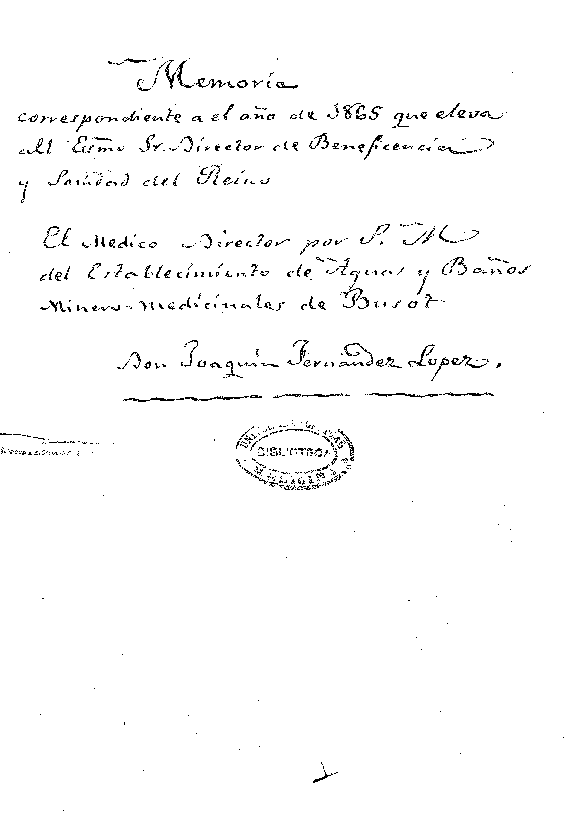 Memoria
correspondiente a el año de 1865 que eleva
all Esmo Sr. Director de Beneficencia
y Sanidad del Reino
El Medico Director por S. M
del Establecimiento de Aguas y Baños
Minero-medicinales de Busot
Don Joaquin Fernandez Lopez.
BIBLIOTECA
MEDICINA
1